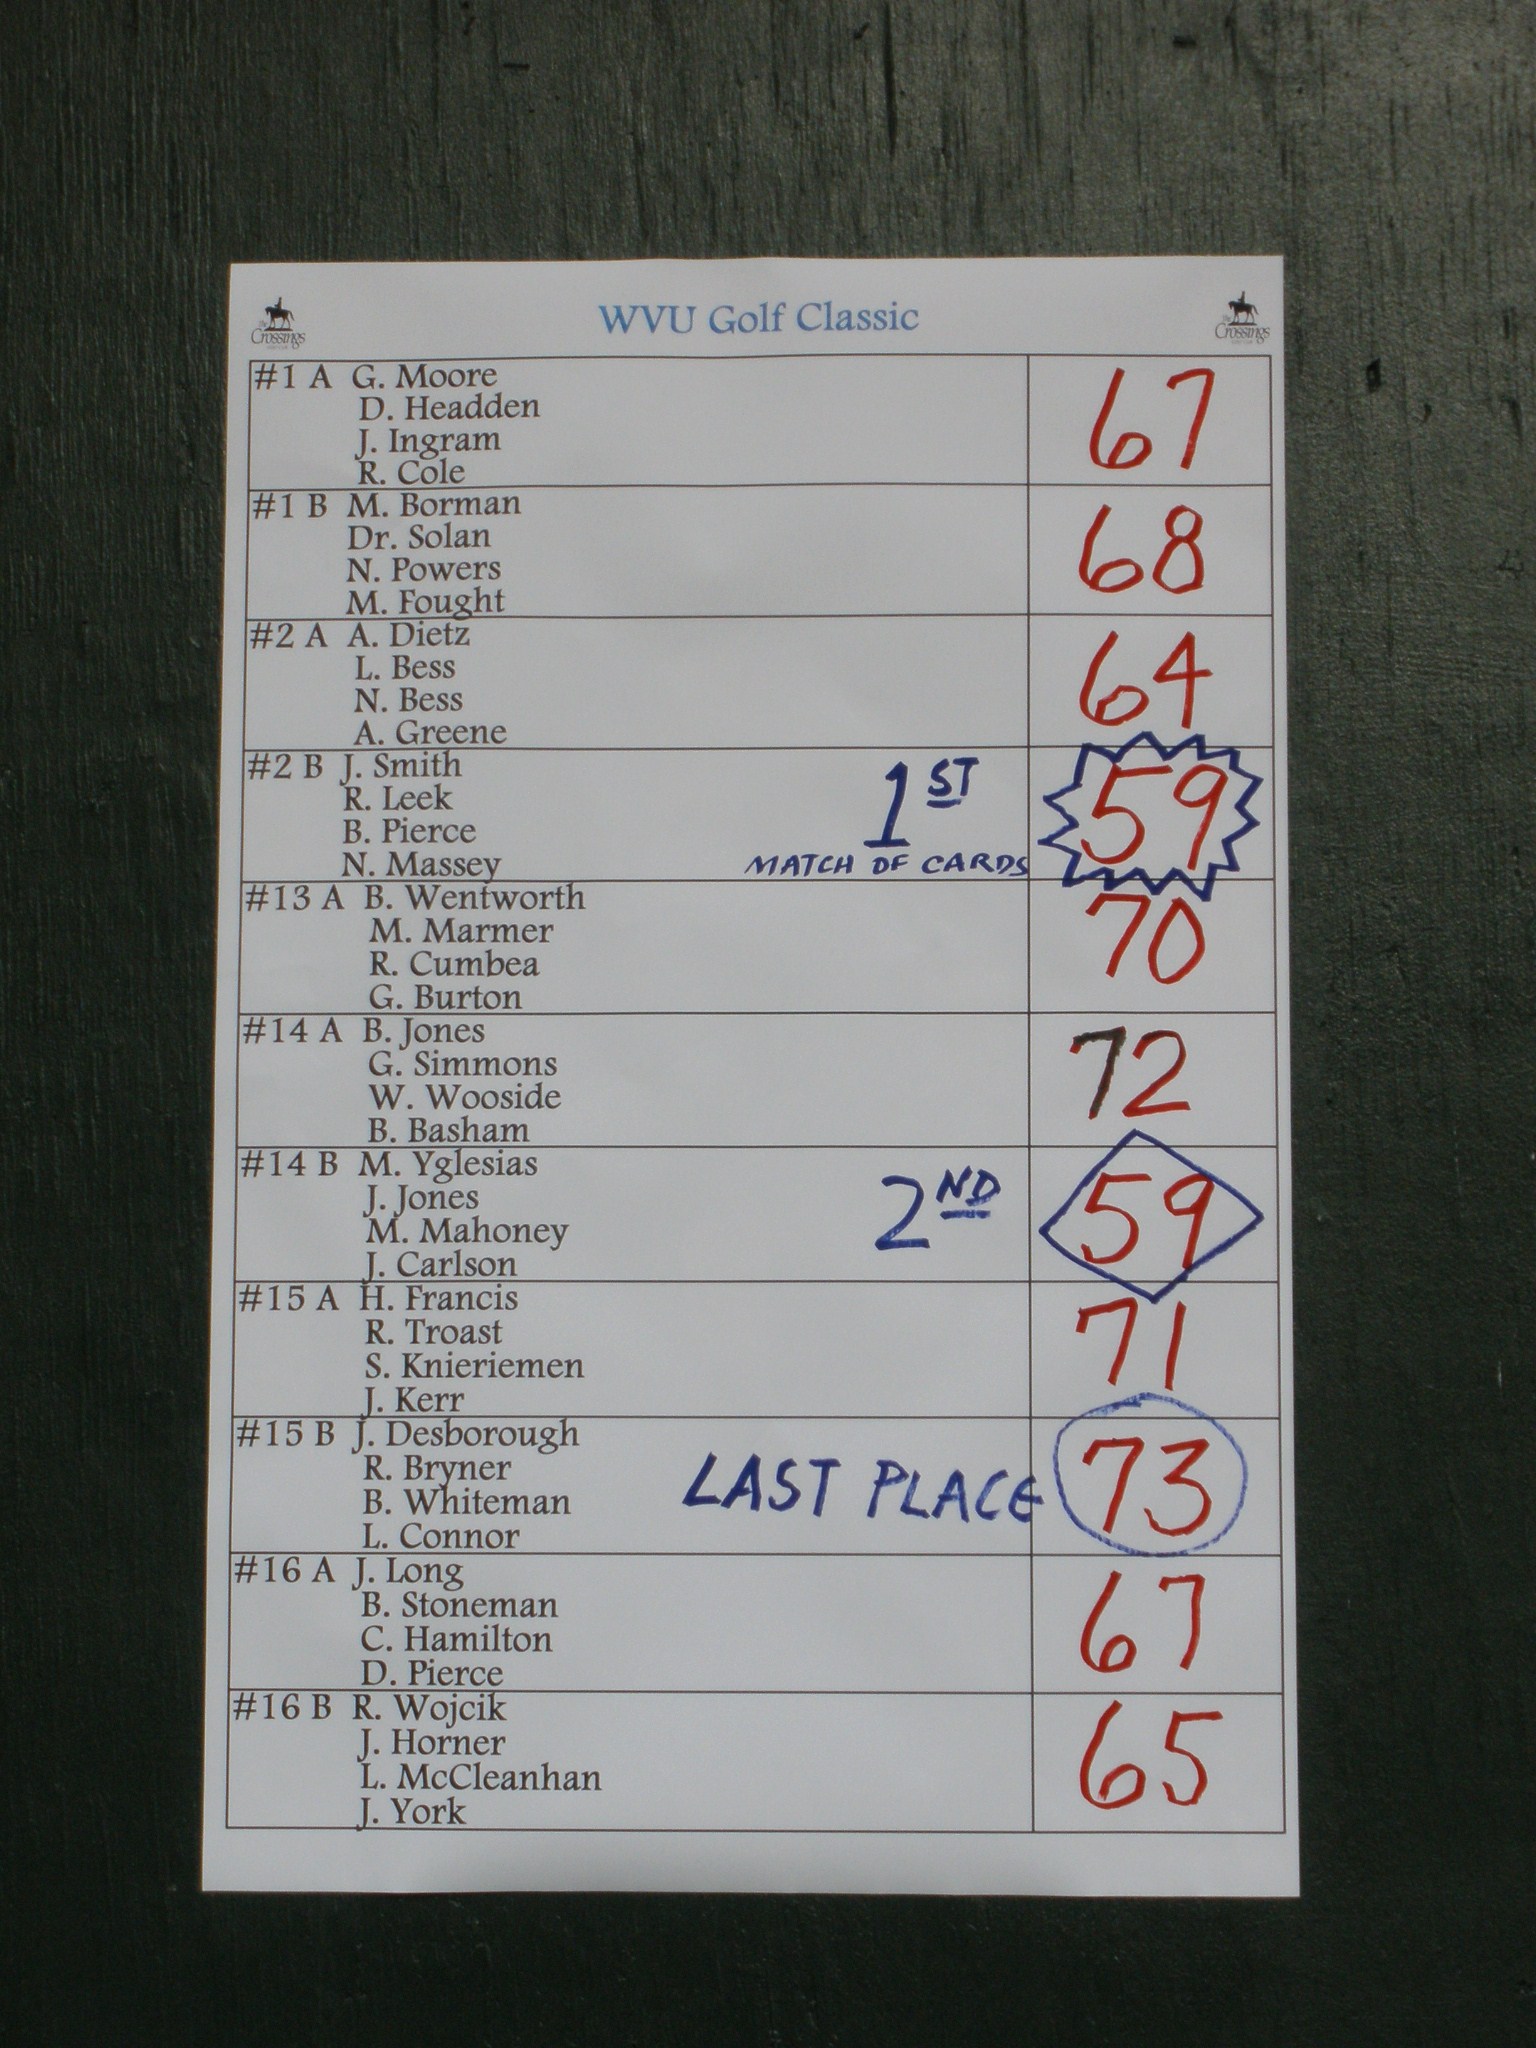 The Crossings
WVU Golf Classic
The Crossings
#1 A G. Moore
D. Headden
J. Ingram
R. Cole
67
#1 B M. Borman
Dr. Solan
N. Powers
M. Fought
68
#2 A A. Dietz
L. Bess
N. Bess
A. Greene
64
#2 B J. Smith
R. Leek
B. Pierce
N. Massey
1ST
MATCH OF CARDS
59
#13 A B. Wentworth
M. Marmer
R. Cumbea
G. Burton
70
#14 A B. Jones
G. Simmons
W. Wooside
B. Basham
72
#14 B M. Yglesias
J. Jones
M. Mahoney
J. Carlson
2ND
59
#15 A H. Francis
R. Troast
S. Knieriemen
J. Kerr
71
#15 B J. Desborough
R. Bryner
B. Whiteman
L. Connor
LAST PLACE
73
#16 A J. Long
B. Stoneman
C. Hamilton
D. Pierce
67
#16 B R. Wojcik
J. Horner
L. McCleanhan
J. York
65